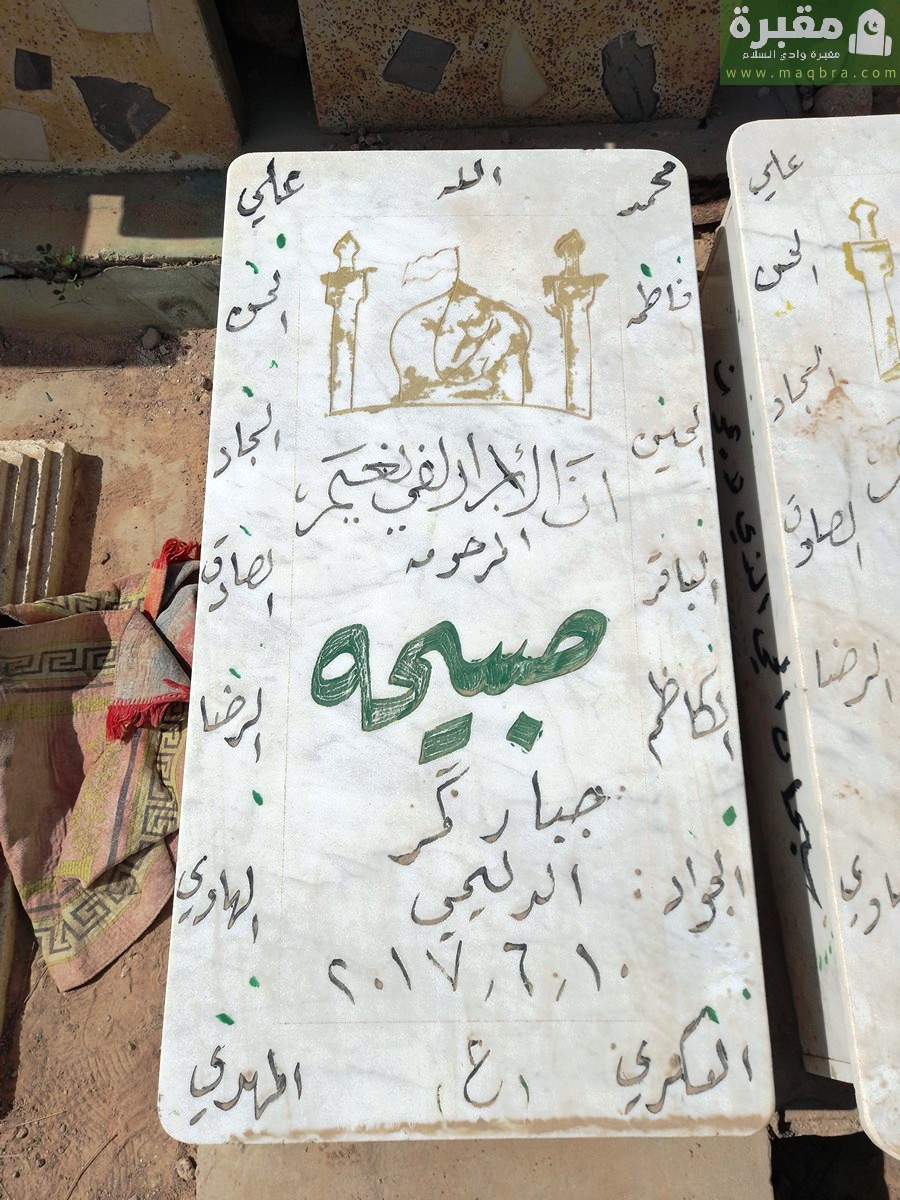 مقبرة
مقبرة وادي السلام
www.maqbra.com
محمد
الله
علي
فاطمه
الحسن
الحسين
السجاد
ان الأبرار لفي نعيم
المرحومه
الباقر
الصادق
صبيحه
الكاظم
الرضا
جبار گمر
الدليمي
الجواد
الهادي
٢٠١٧.٦.١٠
العسكري
(ع)
المهدي
علي
الحسن
السجاد
الصادق
الرضا
الهادي